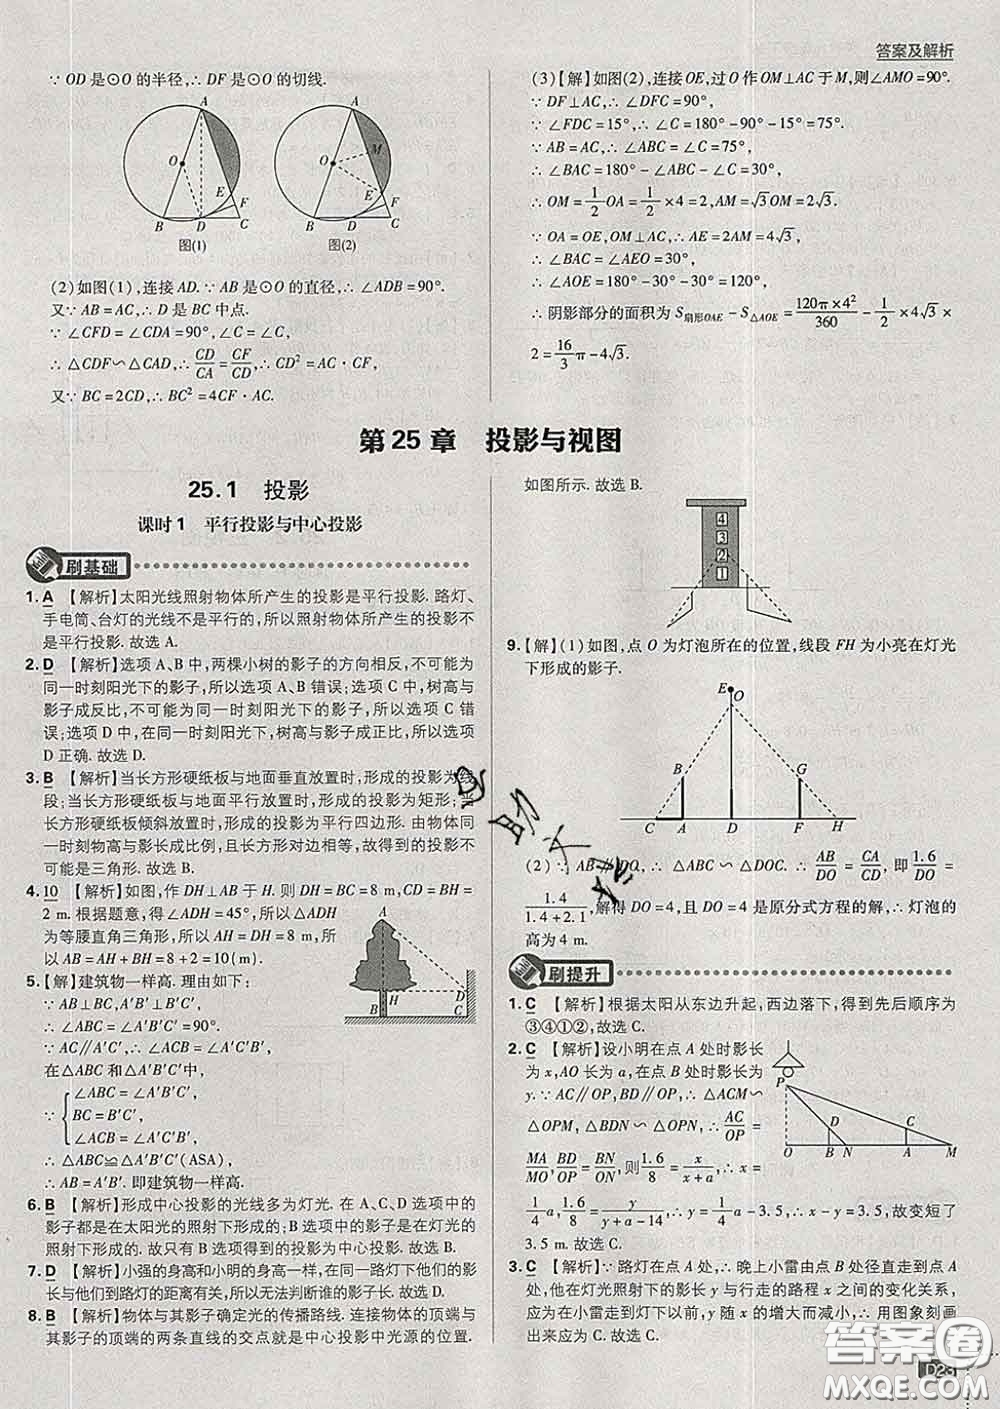 答案及解析
∵ OD 是⊙O 的半径,∴ DF 是⊙O 的切线.
A
O
E
F
B
D
C
图(1)
A
M
O
E
F
B
D
C
图(2)
(2)如图(1),连接 AD.∵ AB 是⊙O 的直径,∴ ∠ADB=90°.
又∵ AB=AC,∴ D 是 BC 中点.
∵ ∠CFD=∠CDA=90°,∠C=∠C,
∴ △CDF∽△CAD,∴ CD/CA=CF/CD,∴ CD²=AC·CF,
又∵ BC=2CD,∴ BC²=4CF·AC.
(3)【解】如图(2),连接 OE,过 O 作 OM⊥AC 于 M,则∠AMO=90°.
∵ DF⊥AC,∴ ∠DFC=90°,
∵ ∠FDC=15°,∴ ∠C=180°-90°-15°=75°.
∵ AB=AC,∴ ∠ABC=∠C=75°,
∴ ∠BAC=180°-∠ABC-∠C=30°,
∴ OM=1/2OA=1/2×4=2,AM=√3OM=2√3.
∵ OA=OE,OM⊥AC,∴ AE=2AM=4√3,
∴ ∠BAC=∠AEO=30°,
∴ ∠AOE=180°-30°-30°=120°,
∴ 阴影部分的面积为 S扇形OAE-S△AOE=120π×4²/360-1/2×4√3×
2=16/3π-4√3.
第 25 章 投影与视图
25.1 投影
课时 1 平行投影与中心投影
刷基础
1. A 【解析】太阳光线照射物体所产生的投影是平行投影.路灯、
手电筒、台灯的光线不是平行的,所以照射物体所产生的投影
不是平行投影.故选 A.
2. D 【解析】选项 A、B 中,两棵小树的影子的方向相反,不可能为
同一时刻阳光下的影子,所以选项 A、B 错误;选项 C 中,树高与
影子成反比,不可能为同一时刻阳光下的影子,所以选项 C 错
误;选项 D 中,在同一时刻阳光下,树高与影子成正比,所以选项
D 正确.故选 D.
3. B 【解析】当长方形硬纸板与地面垂直放置时,形成的投影为线
段;当长方形硬纸板与地面平行放置时,形成的投影为矩形;当
长方形硬纸板倾斜放置时,形成的投影为平行四边形.由物体同
一时刻物高与影长成比例,且长方形对边相等,故得到的投影不
可能是三角形.故选 B.
4. 10 【解析】如图,作 DH⊥AB 于 H.则 DH=BC=8 m,CD=BH=
2 m.根据题意,得∠ADH=45°,所以△ADH
为等腰直角三角形,所以 AH=DH=8 m,所
以 AB=AH+BH=8+2=10(m).
A
H
D
B
C
5.【解】建筑物一样高.理由如下:
∵ AB⊥BC,A′B′⊥B′C′,
∴ ∠ABC=∠A′B′C′=90°.
∵ AC∥A′C′,∴ ∠ACB=∠A′C′B′.
在△ABC 和△A′B′C′中,
∠ABC=∠A′B′C′,
∵ BC=B′C′,
∠ACB=∠A′C′B′,
∴ △ABC≌△A′B′C′(ASA),
∴ AB=A′B′.即建筑物一样高.
6. B 【解析】形成中心投影的光线多为灯光.在 A、C、D 选项中的
影子都是在太阳光的照射下形成的;B 选项中的影子是在灯光的
照射下形成的.故只有 B 选项得到的投影为中心投影.故选 B.
7. D 【解析】小强的身高和小明的身高一样,在同一路灯下的影
长与他们到路灯的距离有关,所以无法判断谁的影子长.故选 D.
8. B 【解析】物体与其影子确定光的传播路线.连接物体的顶端与
其影子的顶端的两条直线的交点就是中心投影中光源的位置.
如图所示.故选 B.
4
3
2
1
9.【解】(1)如图,点 O 为灯泡所在的位置,线段 FH 为小亮在灯光
下形成的影子.
E
O
B
G
C
A
D
F
H
(2)∵ AB∥DO,∴ △ABC∽△DOC.∴ AB/DO=CA/CD,即1.6/DO=
1.4/1.4+2.1,解得 DO=4,且 DO=4 是原分式方程的解,∴ 灯泡的
高为 4 m.
刷提升
1. C 【解析】根据太阳从东边升起,西边落下,得到先后顺序为
③④①②,故选 C.
2. C 【解析】设小明在点 A 处时影长
为 x,AO 长为 a,在点 B 处时影长为
y.∵ AC∥OP,BD∥OP,∴ △ACM∽
△OPM,△BDN∽△OPN,∴ AC/OP=
MA/MO,BD/OP=BN/ON,则1.6/8=x/(x+a),∴ x=
1/4a,1.6/8=y/(y+a-14),∴ y=1/4a-3.5,∴ x-y=3.5,故变短了
3.5 m.故选 C.
P
D
C
O
B
N
A
M
3. C 【解析】∵ 路灯在点 C 处,∴ 晚上小雷由点 B 径直走到点 A
处,他在灯光照射下的影长 y 与行走的路程 x 之间的变化关系,
应为在小雷走到灯下以前,y 随 x 的增大而减小,∴ 用图象刻画
出来应为 C.故选 C.
D23
答案圈
MXQE.COM